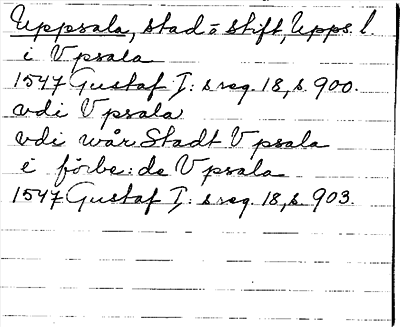 Uppsala, stad o stift, Upps. l.
i Vpsala
1547 Gustaf I: s reg. 18, s. 900.
vdi Vpsala
vdi wår Stadt Vpsala
i förbe:de Vpsala
1547 Gustaf I: s reg. 18, s. 903.